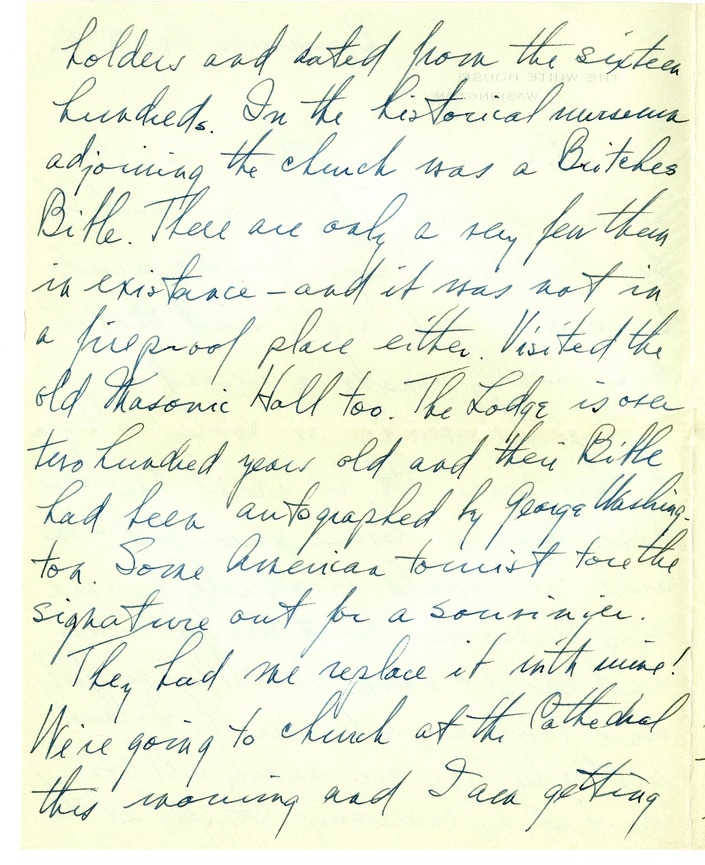 holders and dated from the sixteen
hundreds. In the historical museum
adjoining the church was a Britches
Bible. There are only a very few them
in existance - and it was not in
a fireproof place either. Visited the
old Masonic Hall too. The Lodge is over
two hundred years old and their Bible
had been autographed by George Washing-
ton. Some American tourist tore the
signature out for a souvinier.
They had me replace it with mine!
We're going to church at the Cathedral
this morning and I am getting
THE WHITE HOUSE
WASHINGTON